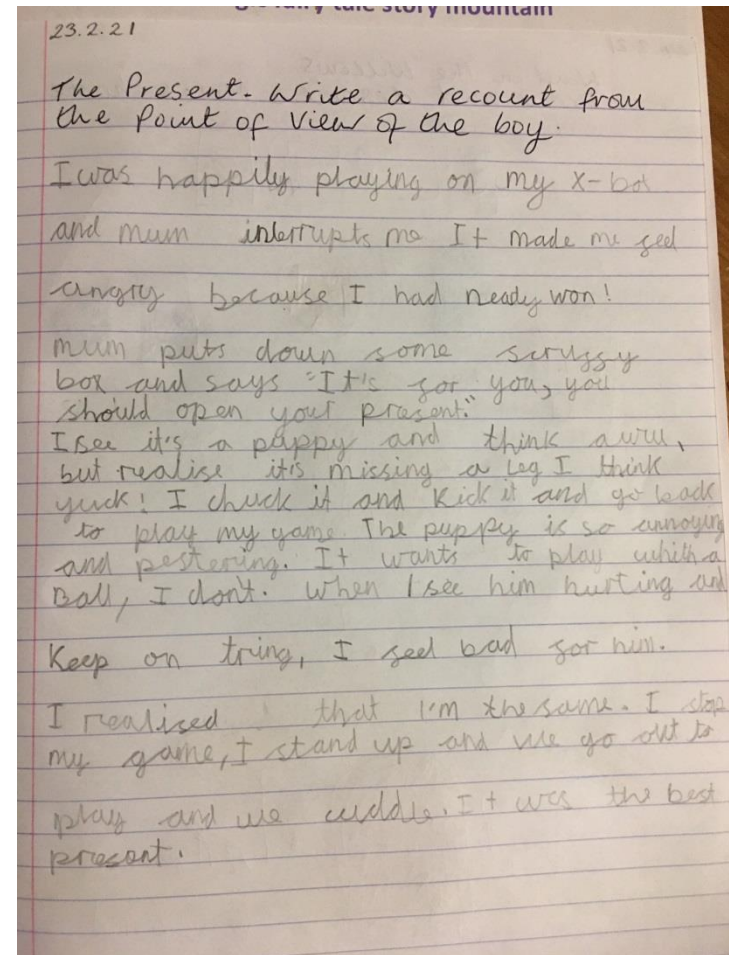 fairy tale story mountain
23.2.21
The Present. Write a recount from
the Point of View of the boy.
I was happily playing on my x-box
and mum interrupts me It made me feel
angry because I had nearly won!
mum puts down some scruffy
box and says "It's for you, you
should open your present."
I see it's a puppy and think aww,
but realise it's missing a leg I think
yuck! I chuck it and kick it and go back
to play my game. The puppy is so annoying
and pestering. It wants to play which a
Ball, I don't. When I see him hurting and
Keep on tring, I feel bad for him.
I realised that I'm the same. I stop
my game, I stand up and we go out to
play and we cuddle. It was the best
present.